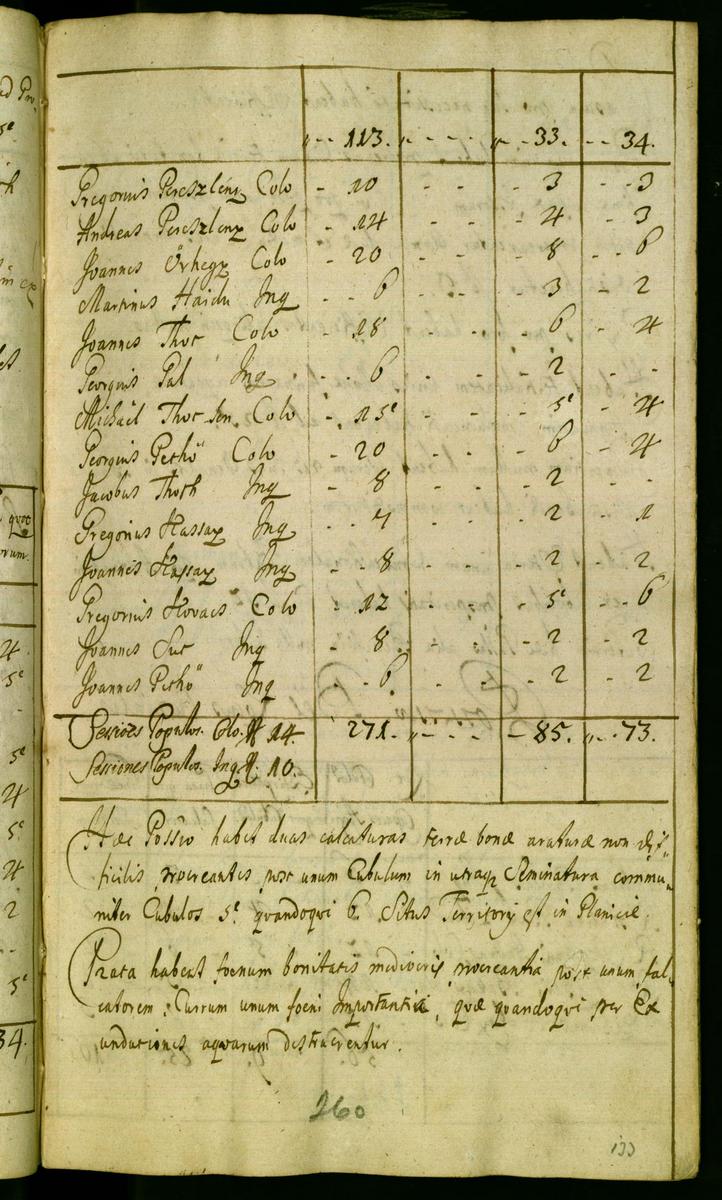 „ - - 113. „ - - - „ - 33. - - 34.
Gregorius Pereszlény Colo - 10 - - - 3 - - 3
Andreas Pereszleny Colo - 14 - - - 4 - 3
Joannes Örhegy Colo - 20 - - - 8 - - 6
Martinus Haidu Inq - - 6 - - - 3 - 2
Joannes Thot Colo - 18 - - - 6 - 4
Georgius Pal Inq - - 6 - - - 2 - -
Michaël Thot Sen. Colo - 15 - - - 5 - 4
Georgius Pethö Colo - 20 - - - 6 - 4
Jacobus Thoth Inq - 8 - - - 2 - -
Gregorius Kassay Inq - - 7 - - - 2 - 1
Joannes Kassay Inq - - 8 - - - 2 - 2
Gregorius Kovacs Colo - 12 - - - 5 - - 6
Joannes Sut Inq - 8 - - - 2 - 2
Joannes Pethö Inq - - 6 - - - 2 - 2
Sessiões Populos. Colo. 14. 271. - „ - - - - 85. „ - 73.
Sessiones Populos. Inq. 10.
Hæc Possio habet duas calcaturas terræ bonæ araturæ non dif„
ficilis procreantis post unum Cubulum in utraq Seminatura commu„
niter Cubulos 5. quandoqvi 6. Situs Territorij est in Planicie.
Prata habent foenum bonitatis mediocris procreantia post unum fal„
catorem, Currum unum foeni Importantia, quæ quandoqvi per Ex
undationes aqvarum destruerentur.
260
133
ad Pro
5
4.
5
-
5
4
5
4
2
-
5
34.
quot
orum.